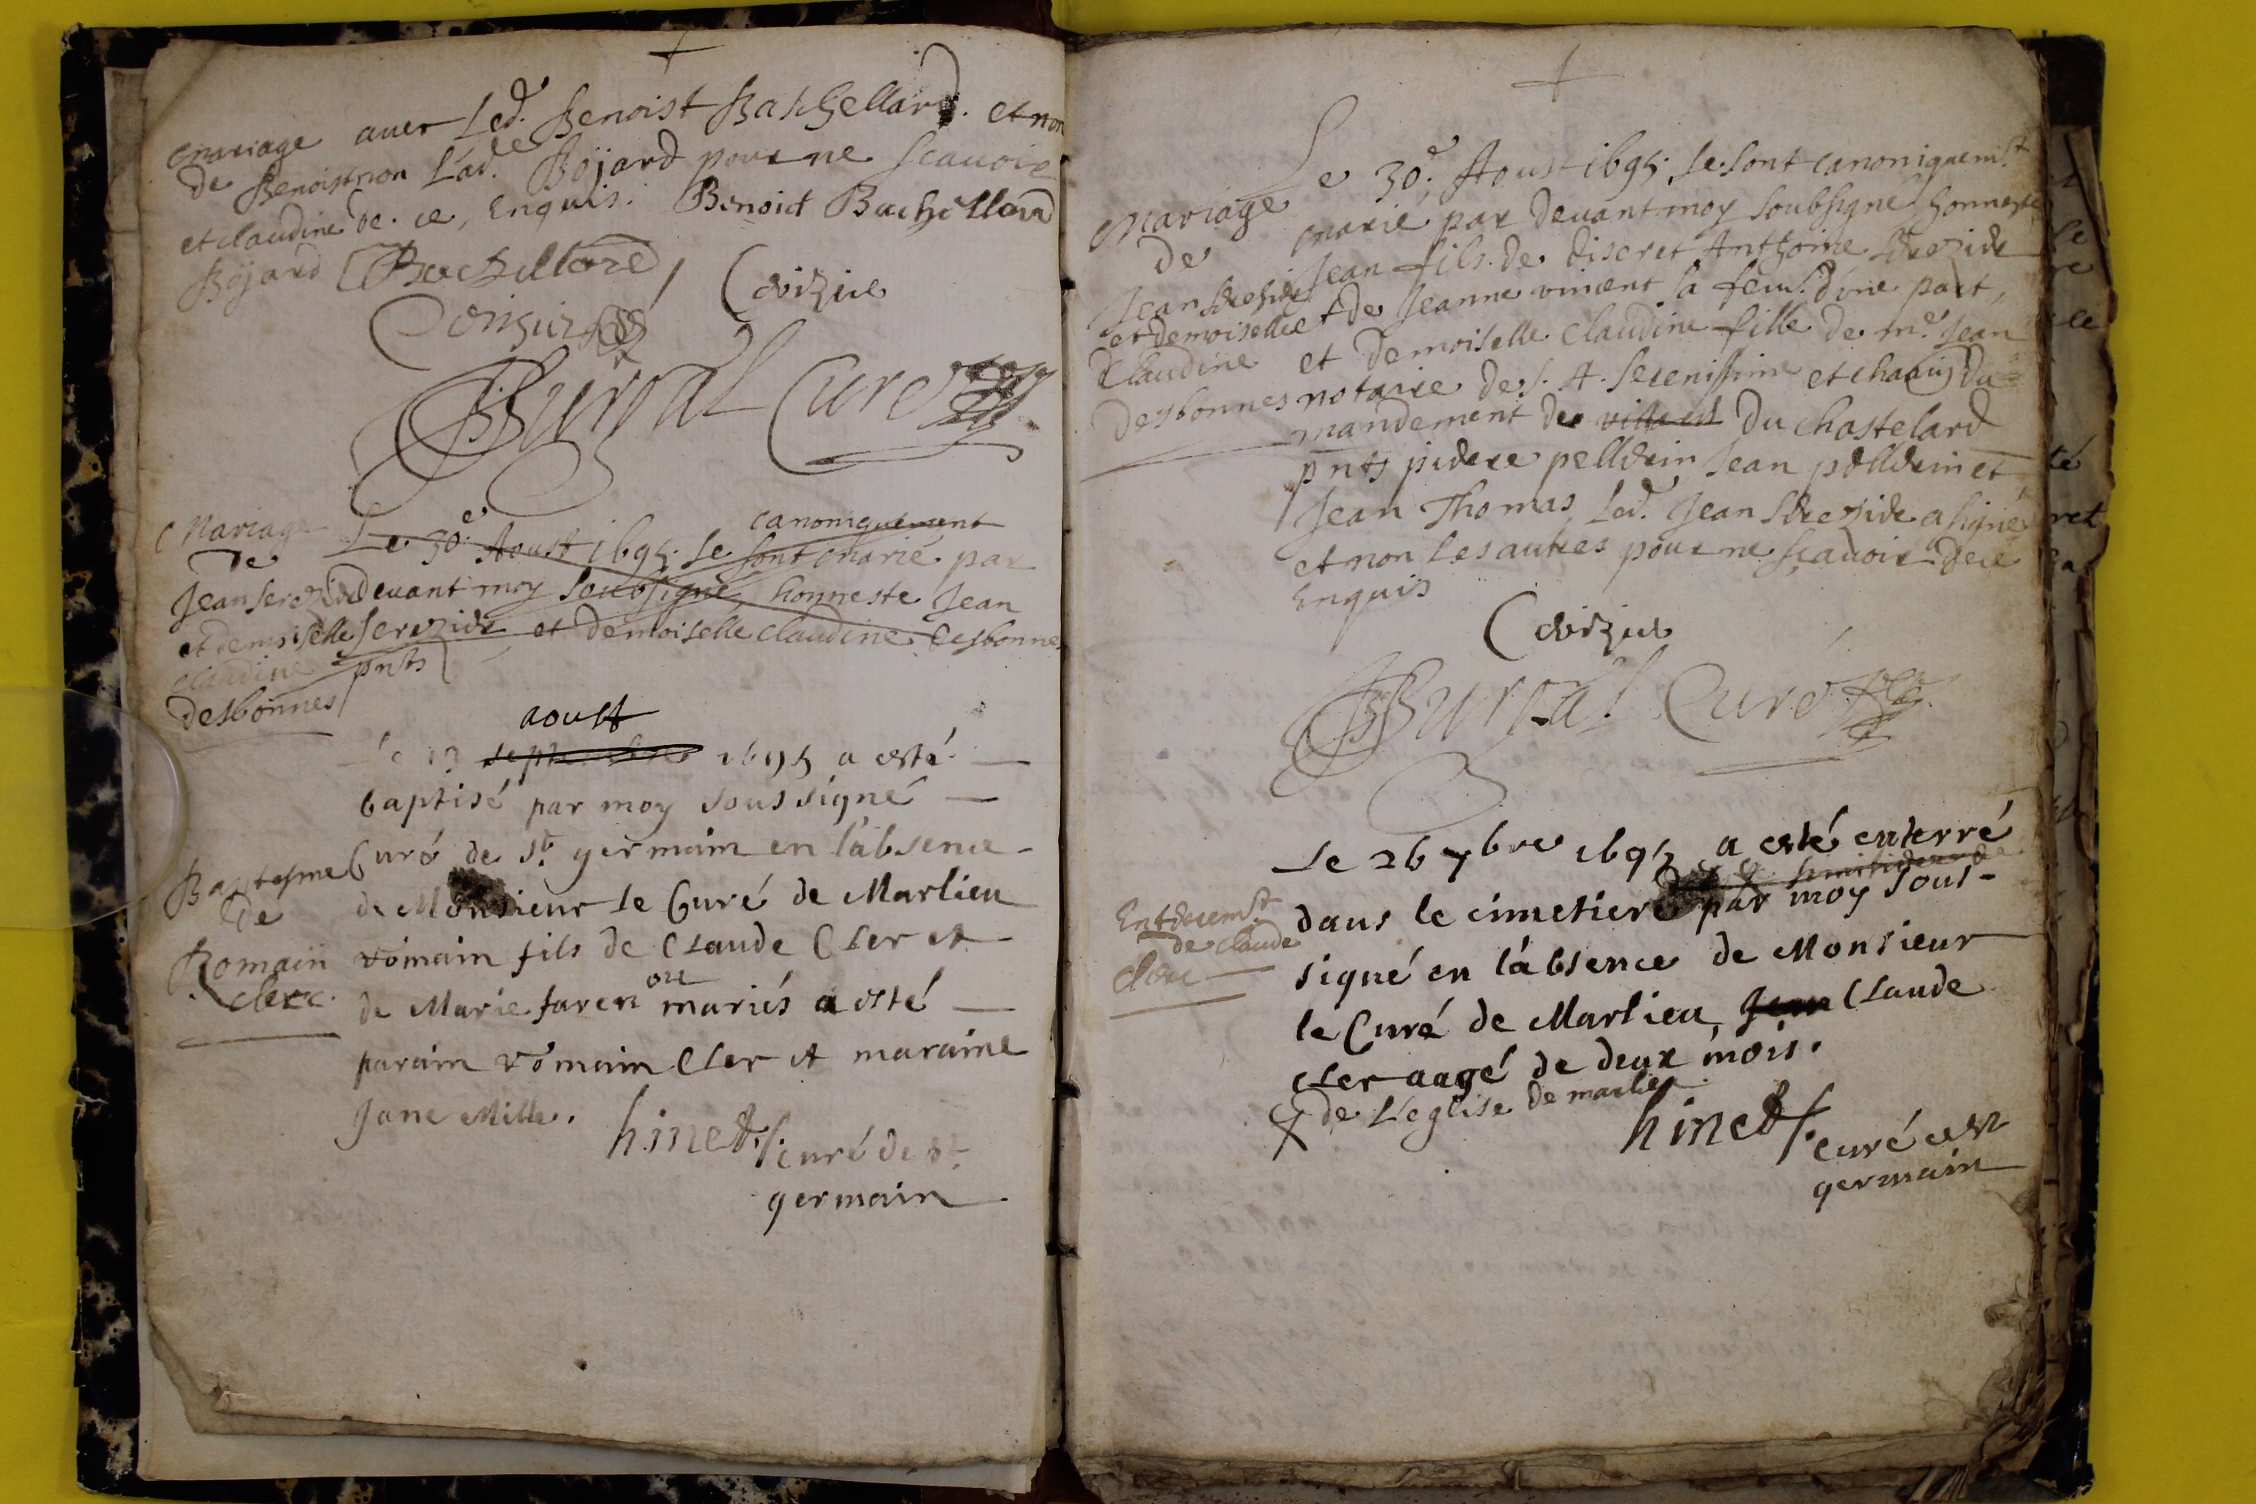 mariage
de Benoist
et claudine
Bojard
avec Led. Benoist Bachellard. et non
non Lad.e Bojard pour ne scavoir
de. ce, Enquis. Benoist Bachellard
Bachellard
Cvizie
Burval Curé
Mariage
de
Jean Serezide
et demoiselle
claudine
desbonnes
canoniquement
Le 30.e Aoust 1695. se sont marié par
devant moy soubsigné, honneste Jean
serezide et demoiselle claudine desbonnes
pnts
Baptesme
de
Romain
clerc.
aoust
Le septembre 1695 a esté
baptisé par moy soussigné
Curé de st. germain en l'absence
de Monsieur le Curé de Marlieu
romain fils de Claude Cler et
de Marie faren on mariés a esté
parain romain Cler et maraine
Jane Mille.
hinet curé de st.
germain
Mariage
de
Jean Serezide
et demoiselle
Claudine
desbonnes
Le 30.e Aoust 1695. se sont canoniquemt.
marie par devant moy soubsigné honneste
Jean fils de discret Anthoine Serezide
et de Jeanne vincent sa fem. d'une part,
et Demoiselle Claudine fille de me. Jean
notaire de S. A. Serenissime et du
mandement de du chastelard
pnts pierre pelldrin Jean pelldrin et
Jean Thomas, Led. Jean Serezide a signé
et non les autres pour ne sçavoir de ce
Enquis
Cvizie
Burval Curé
Enterremt.
de claude
clerc
Le 26 7bre 1695 a esté enterré
dans le cimetiere par moy sous-
signé en l'absence de Monsieur
le Curé de Marlieu, Jean Claude
cler aagé de deux mois.
de L'eglise de marlieu
hinet curé de st
germain